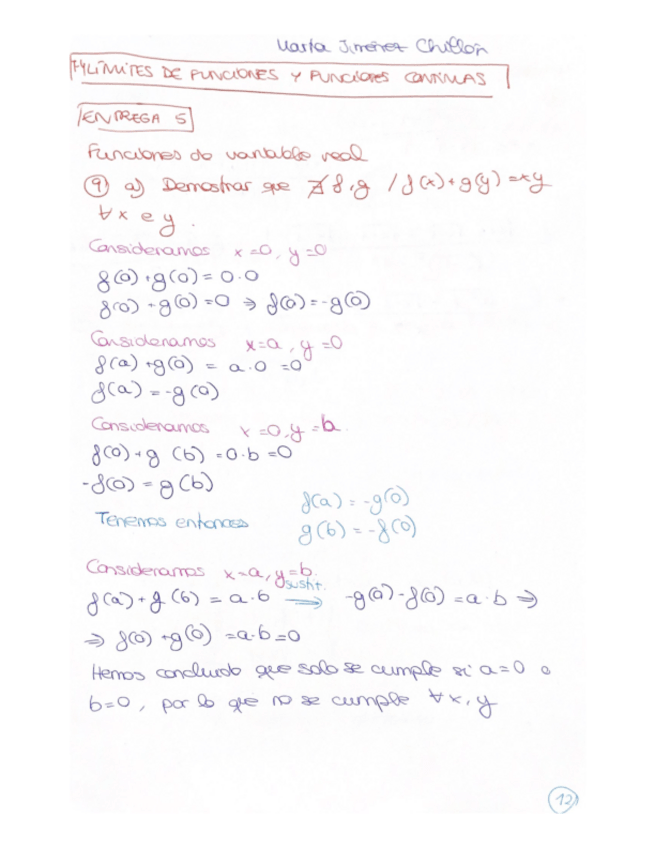 Marta Jiménez Chillón
T4 LÍMITES DE FUNCIONES Y FUNCIONES CONTINUAS
ENTREGA 5
Funciones de variable real
9 a) Demostrar que ∄ f, g / f(x)+g(y)=xy
∀x e y.
Consideramos x=0, y=0
f(0)+g(0)=0·0
f(0)+g(0)=0 ⇒ f(0)=-g(0)
Consideramos x=a, y=0
f(a)+g(0) = a·0 =0
f(a)=-g(0)
Consideramos x=0, y=b.
f(0)+g(b)=0·b=0
-f(0)=g(b)
f(a)=-g(0)
Tenemos entonces g(b)=-f(0)
Consideramos x=a, y=b.
f(a)+g(b)=a·b sustit. ⟶ -g(0)-f(0)=a·b ⇒
⇒ f(0)+g(0)=a·b=0
Hemos concluido que solo se cumple si a=0 o
b=0, por lo que no se cumple ∀x, y
12